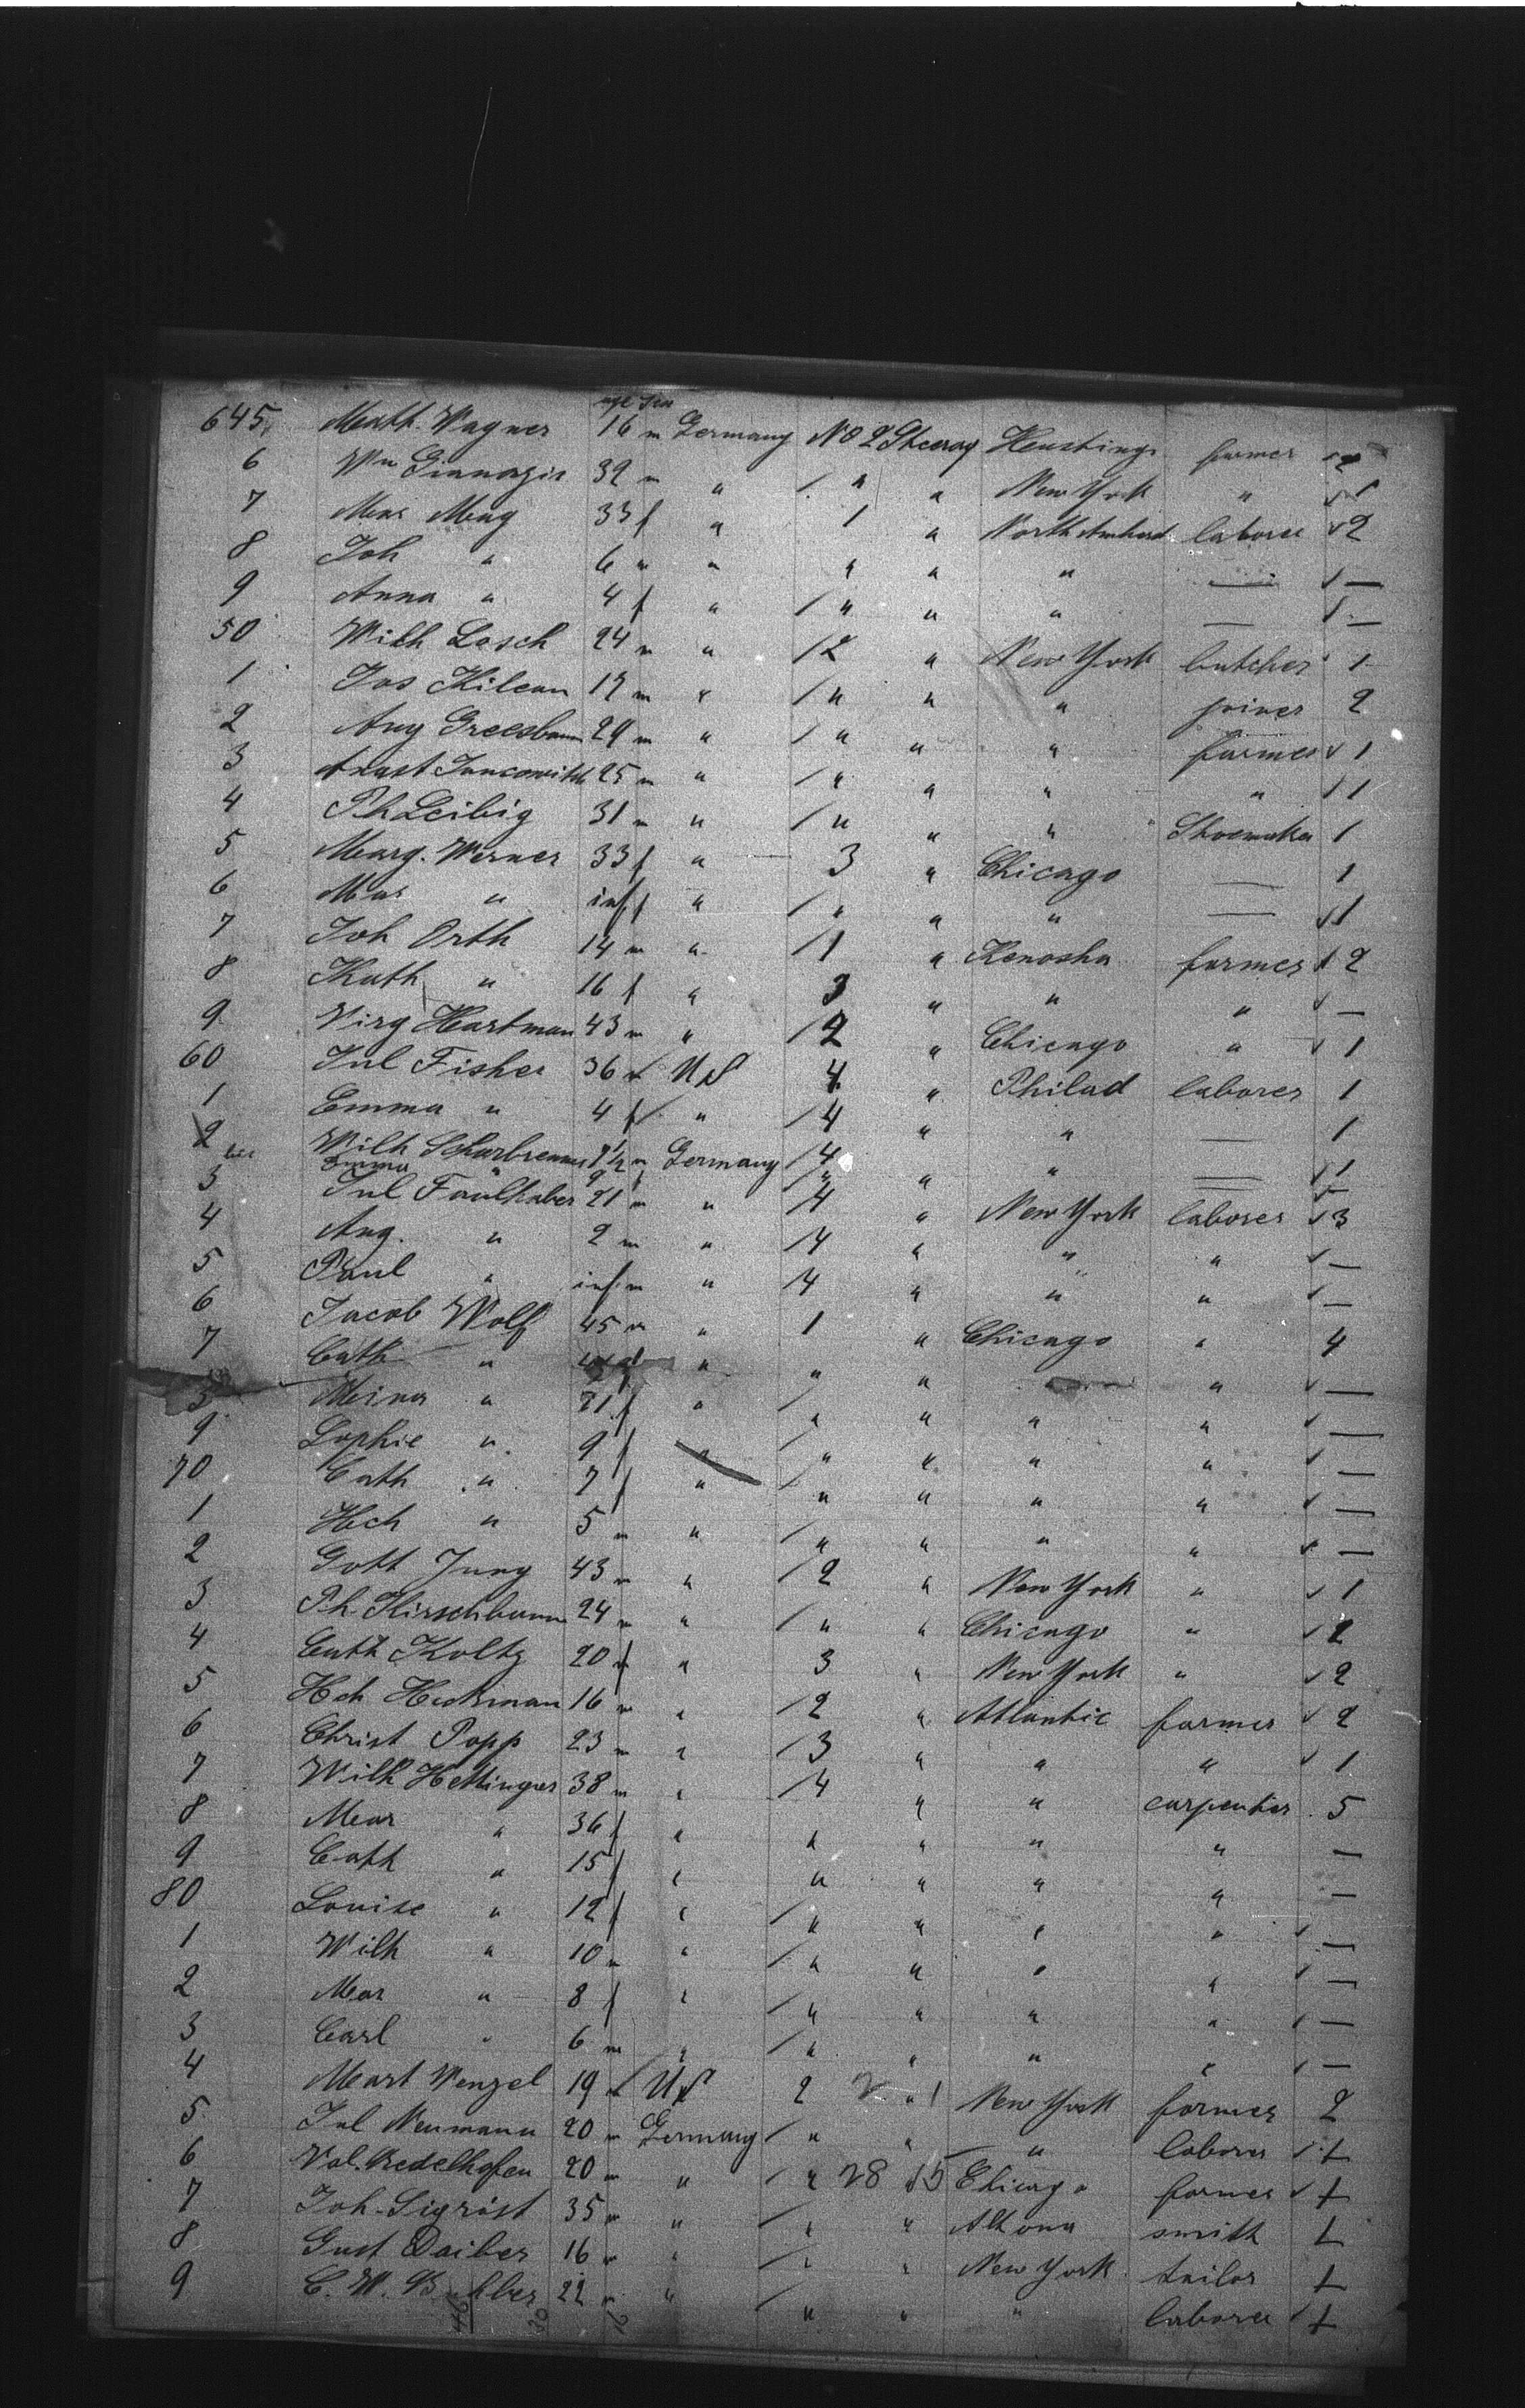 age Sex
645 Math. Wagner 16 m Germany No 2 Steerag Hastings farmer 2
6 Wm 32 m " / " " New York " ✓ 1
7 Mar Mag 33 f " 1 " North Amherst laborer ✓ 2
8 Joh " 6 " " " " " — ✓ —
9 Anna " 4 f " / " " " — ✓ —
50 Wilh Losch 24 m " / 2 " New York butcher 1
1 Jos Kilean 17 m " / " " " joiner 2
2 Aug Greesbaum 29 m " / " " " farmer ✓ 1
3 Anast Juncowitch 25 m " / " " " " ✓ 1
4 Ph Leibig 31 m " / " " " Shoemaker 1
5 Marg. Werner 33 f " 3 " Chicago — 1
6 Mar " inf f " / " " " — ✓ 1
7 Joh Orth 14 m " / 1 " Kenosha farmer ✓ 2
8 Kath " 16 f " 3 " " " ✓ —
9 Virg Hartman 43 m " / 2 " Chicago " ✓ 1
60 Jul Fisher 36 m US 4 " Philad laborer 1
1 Emma " 4 f " / 4 " " — 1
2 Wilh 9 1/2 m Germany / 4 " " — ✓ 1
bis Emma " 9 f " — ✓
3 Jul Faulhaber 21 m " 4 " New York laborer ✓ 3
4 Aug. " 2 m " / 4 " " " ✓ —
5 Paul " inf m " 4 " " " ✓ —
6 Jacob Wolf 45 m " 1 " Chicago " 4
7 Cath " " " " " ✓ —
8 Mina " 21 f " / " " " " ✓ —
9 Sophie " 9 f " / " " " " ✓ —
70 Cath " 7 f " / " " " " ✓ —
1 Hch " 5 m " / " " " " ✓ —
2 Gott Jung 43 m " / 2 " New York " ✓ 1
3 Ph. Hirschbaum 24 m " / " " Chicago " ✓ 2
4 Cath Koltz 20 f " 3 " New York " ✓ 2
5 Hch Heckman 16 m " / 2 " Atlantic farmer ✓ 2
6 Christ Popp 23 m " / 3 " " " ✓ 1
7 Wilh Hettinger 38 m " / 4 " " carpenter 5
8 Mar " 36 f " " " " " —
9 Cath " 15 f " " " " " —
80 Louise " 12 f " / " " " " ✓ —
1 Wilh " 10 m " / " " " " ✓ —
2 Mar " 8 f " / " " " " ✓ —
3 Carl " 6 m " / " " " " ✓ —
4 Mart Wenzel 19 m US 2 2 " 1 New York farmer 2
5 Jul Neumann 20 m Germany / " " " laborer ✓ 1
6 Val. Bedelhofen 20 m " / " 28 15 Chicago farmer ✓ 1
7 Joh. Sigrist 35 m " / " " Altona smith 1
8 Gust Daiber 16 m " / " " New York tailor 1
9 C. W. 22 m " / " " " laborer ✓ 1